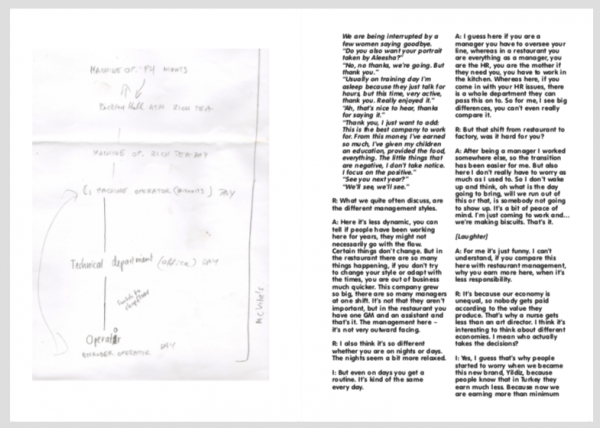 MANAGE OF. P4 NIGHTS
RICH TEA
MANAGE OF. RICH TEA DAY
MACHINE OPERATOR (NIGHTS) DAY
Technical department (office) DAY
Operator
OPERATOR DAY
We are being interrupted by a
few women saying goodbye.
"Do you also want your portrait
taken by Aleesha?"
"No, no thanks, we're going. But
thank you."
"Usually on training day I'm
asleep because they just talk for
hours, but this time, very active,
thank you. Really enjoyed it."
"Ah, that's nice to hear, thanks
for saying it."
"Thank you, I just want to add:
This is the best company to work
for. From this money, I've earned
so much, I've given my children
an education, provided the food,
everything. The little things that
are negative, I don't take notice.
I focus on the positive."
"See you next year?"
"We'll see, we'll see."
R: What we quite often discuss, are
the different management styles.
A: Here it's less dynamic, you can
tell if people have been working
here for years, they might not
necessarily go with the flow.
Certain things don't change. But in
the restaurant there are so many
things happening, if you don't try
to change your style or adapt with
the times, you are out of business
much quicker. This company grew
so big, there are so many managers
at one shift. It's not that they aren't
important, but in the restaurant you
have one GM and an assistant and
that's it. The management here –
it's not very outward facing.
R: I also think it's so different
whether you are on nights or days.
The nights seem a bit more relaxed.
I: But even on days you get a
routine. It's kind of the same
every day.
A: I guess here if you are a
manager you have to oversee your
line, whereas in a restaurant you
are everything as a manager, you
are the HR, you are the mother if
they need you, you have to work in
the kitchen. Whereas here, if you
come in with your HR issues, there
is a whole department they can
pass this on to. So for me, I see big
differences, you can't even really
compare it.
R: But that shift from restaurant to
factory, was it hard for you?
A: After being a manager I worked
somewhere else, so the transition
has been easier for me. But also
here I don't really have to worry as
much as I used to. So I don't wake
up and think, oh what is the day
going to bring, will we run out of
this or that, is somebody not going
to show up. It's a bit of peace of
mind. I'm just coming to work and...
we're making biscuits. That's it.
[Laughter]
A: For me it's just funny. I can't
understand, if you compare this
here with restaurant management,
why you earn more here, when it's
less responsibility.
R: It's because our economy is
unequal, so nobody gets paid
according to the value they
produce. That's why a nurse gets
less than an art director. I think it's
interesting to think about different
economies. I mean who actually
takes the decisions?
I: Yes, I guess that's why people
started to worry when we became
this new brand, Yildiz, because
people know that in Turkey they
earn much less. Because now we
are earning more than minimum